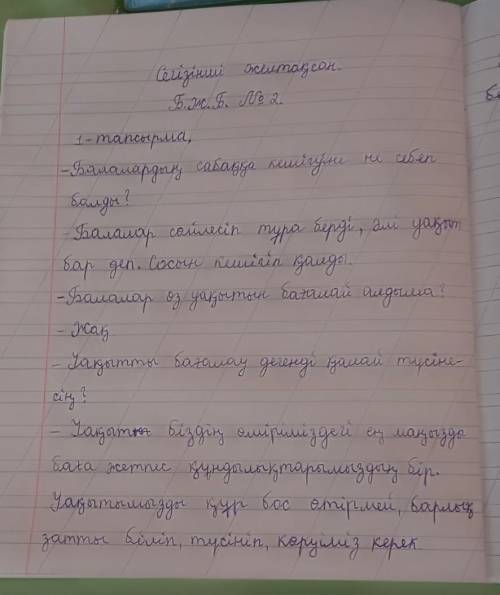 Сегізінші желтоқсан.
Б.Ж.Б. №2.
1-тапсырма,
-Балалардың сабаққа кешігуіне не себеп
болды?
-Балалар сөйлесіп тұра берді, әлі уақыт
бар деп. Сосын кешігіп қалды.
-Балалар өз уақытын бағалай алдыма?
- Жақ
- Уақытты бағалау дегенді қалай түсіне-
сің?
- Уақыт біздің өміріміздегі ең маңызды
баға жетпес құндылықтарымыздың бір.
Уақытымызды құр бос өтірмей, барлық
затты біліп, түсініп, көруіміз керек